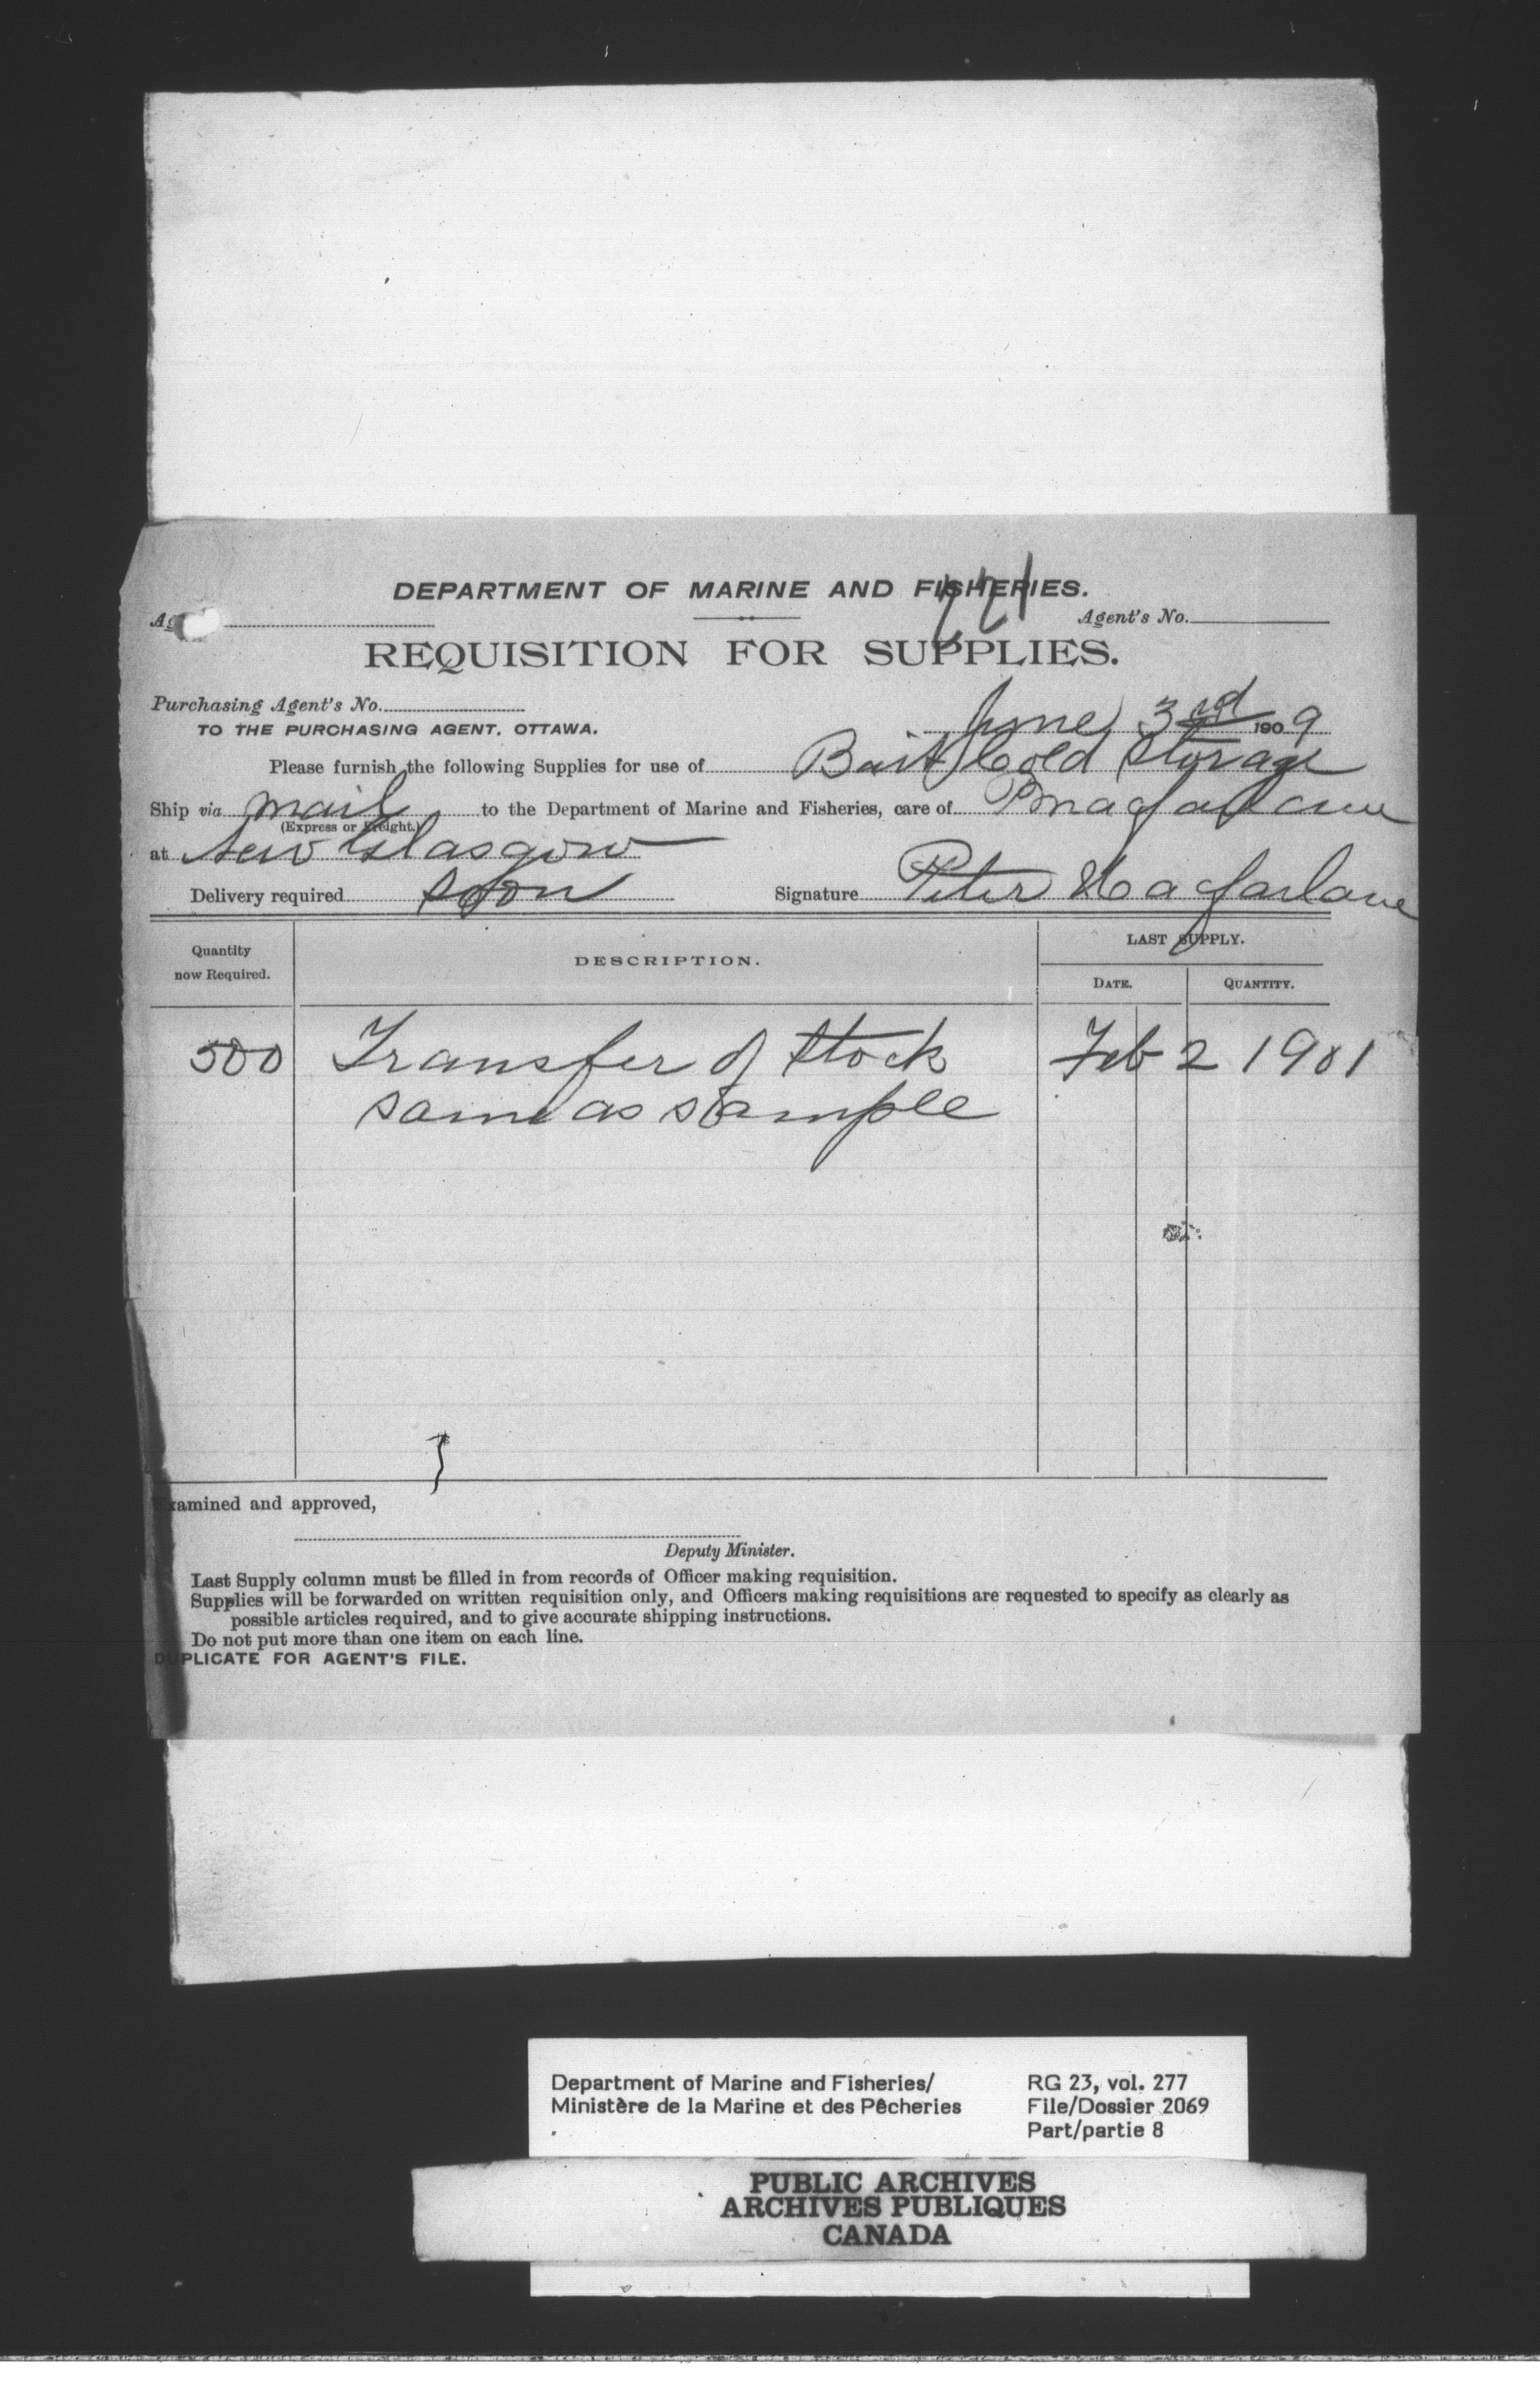 DEPARTMENT OF MARINE AND FISHERIES.
Agent's No.
REQUISITION FOR SUPPLIES.
Purchasing Agent's No.
June 3rd 1909
TO THE PURCHASING AGENT, OTTAWA.
Please furnish the following Supplies for use of Bait Cold Storage
Ship via mail to the Department of Marine and Fisheries, care of P Macfarlane
(Express or Freight.)
at New Glasgow
Delivery required soon Signature Peter Macfarlane
Quantity now Required. DESCRIPTION. LAST SUPPLY.
DATE. QUANTITY.
500 Transfer of Stock Feb 2 1901
same as sample
Examined and approved,
Deputy Minister.
Last Supply column must be filled in from records of Officer making requisition.
Supplies will be forwarded on written requisition only, and Officers making requisitions are requested to specify as clearly as
possible articles required, and to give accurate shipping instructions.
Do not put more than one item on each line.
DUPLICATE FOR AGENT'S FILE.
Department of Marine and Fisheries/ RG 23, vol. 277
Ministère de la Marine et des Pêcheries File/Dossier 2069
Part/partie 8
PUBLIC ARCHIVES
ARCHIVES PUBLIQUES
CANADA